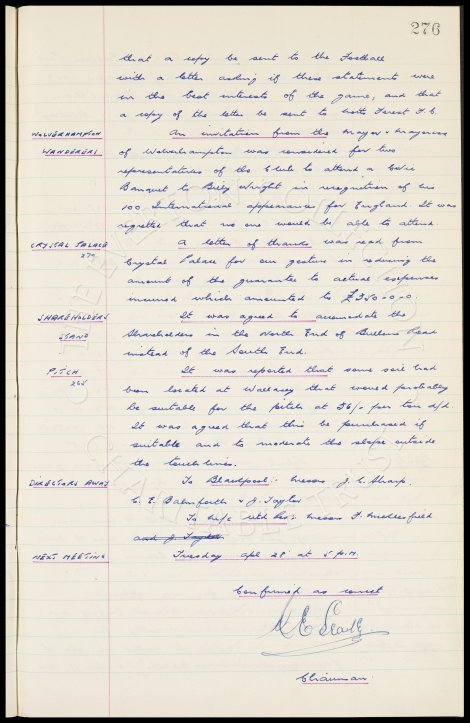 276
that a copy be sent to the Football
with a letter asking if these statements were
in the best interests of the game, and that
a copy of the letter be sent to Notts Forest F.C.
WOLVERHAMPTON An invitation from the Mayor & Mayoress
WANDERERS of Wolverhampton was considered for two
representatives of the Club to attend a Civic
Banquet to Billy Wright in recognition of his
100 International appearances for England. It was
regretted that no one would be able to attend
CRYSTAL PALACE A letter of thanks was read from
Crystal Palace for our gesture in reducing the
amount of the guarantee to actual expenses
incurred which amounted to £350-0-0.
SHAREHOLDERS It was agreed to accomodate the
STAND Shareholders in the North End of Bullens Road
instead of the South End.
PITCH It was reported that some soil had
268 been located at Wallasey that would probably
be suitable for the pitch at 36/- per ton d/d.
It was agreed that this be purchased if
suitable and to moderate the slope outside
the touch lines.
DIRECTORS AWAY To Blackpool:- Messrs J. C. Sharp,
C. E. Balmforth & J. Taylor
To M/c Utd Res: Messrs F. Micklesfield
and J. Taylor
NEXT MEETING Tuesday Apl 28 at 5 P.M.
Confirmed as correct
Chairman